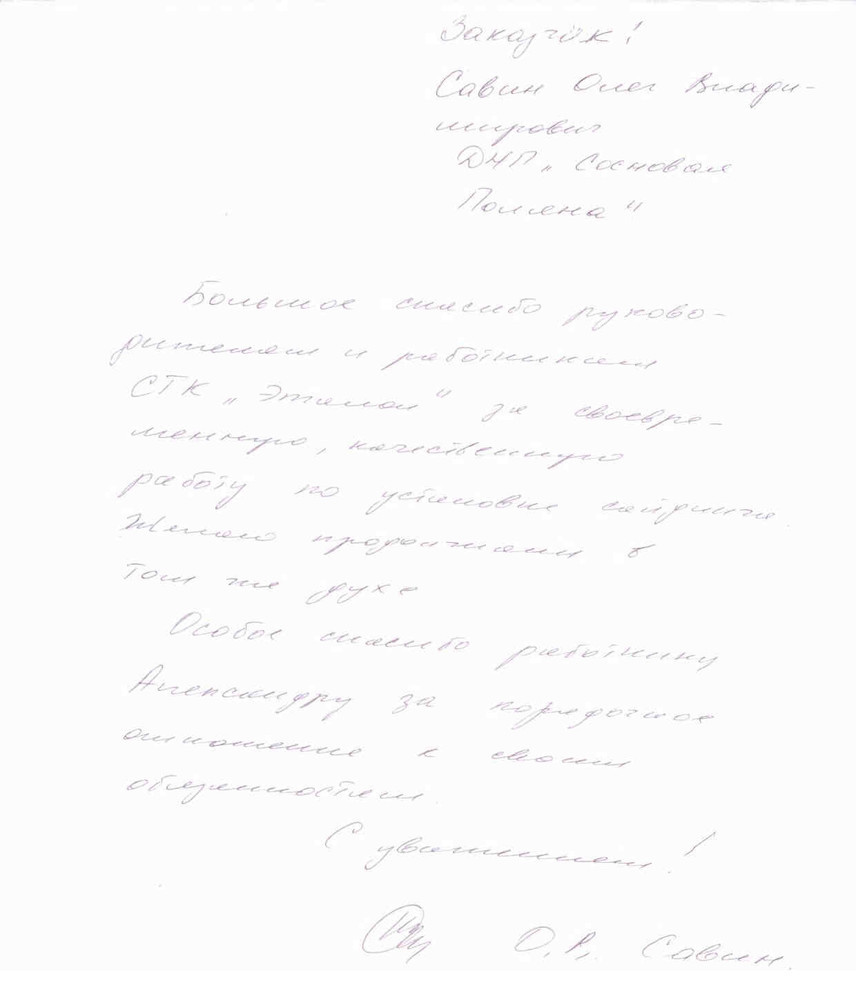 Заказчик!
Савин Олег Влади-
мирович
ДНП „Сосновая
Поляна"
Большое спасибо руково-
дителям и работникам
СТК „Эталон" за своевре-
менную, качественную
работу по установке сайдинга
Желаю продолжать в
том же духе
Особое спасибо работнику
Александру за порядочное
отношение к своим
обязанностям.
С уважением!
О.В. Савин.